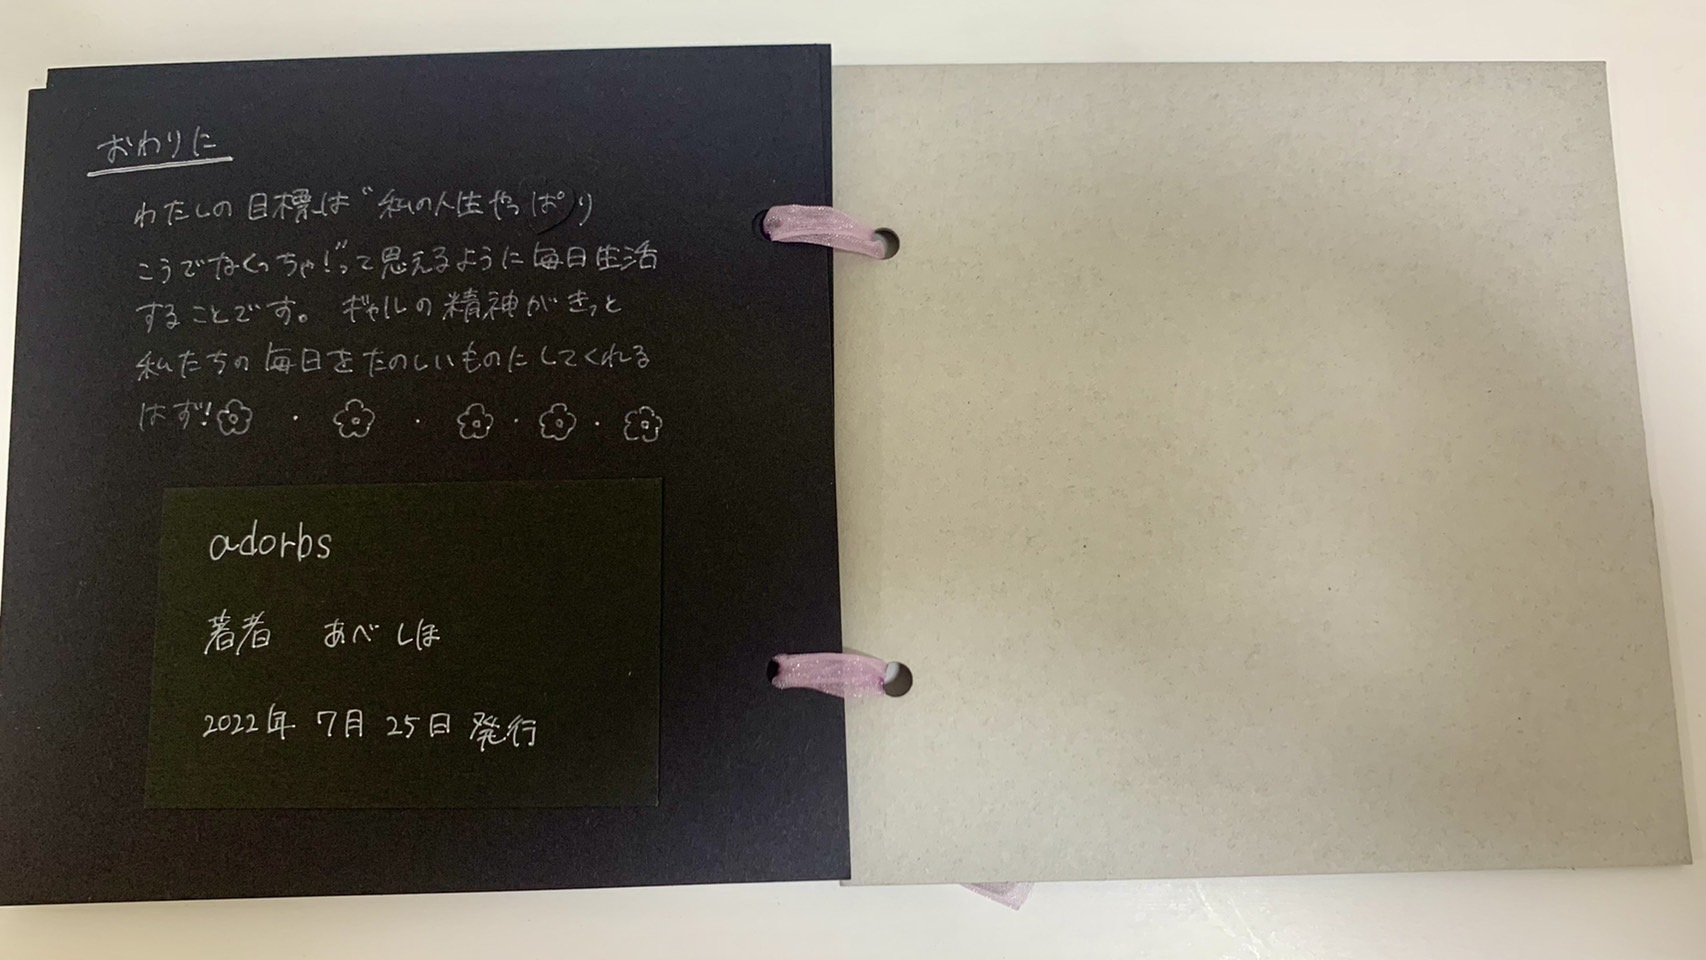 おわりに
わたしの目標は"私の人生やっぱり
こうでなくっちゃ!"って思えるように毎日生活
することです。ギャルの精神がきっと
私たちの毎日をたのしいものにしてくれる
はず!
adorbs
著者 あべしほ
2022年 7月 25日 発行